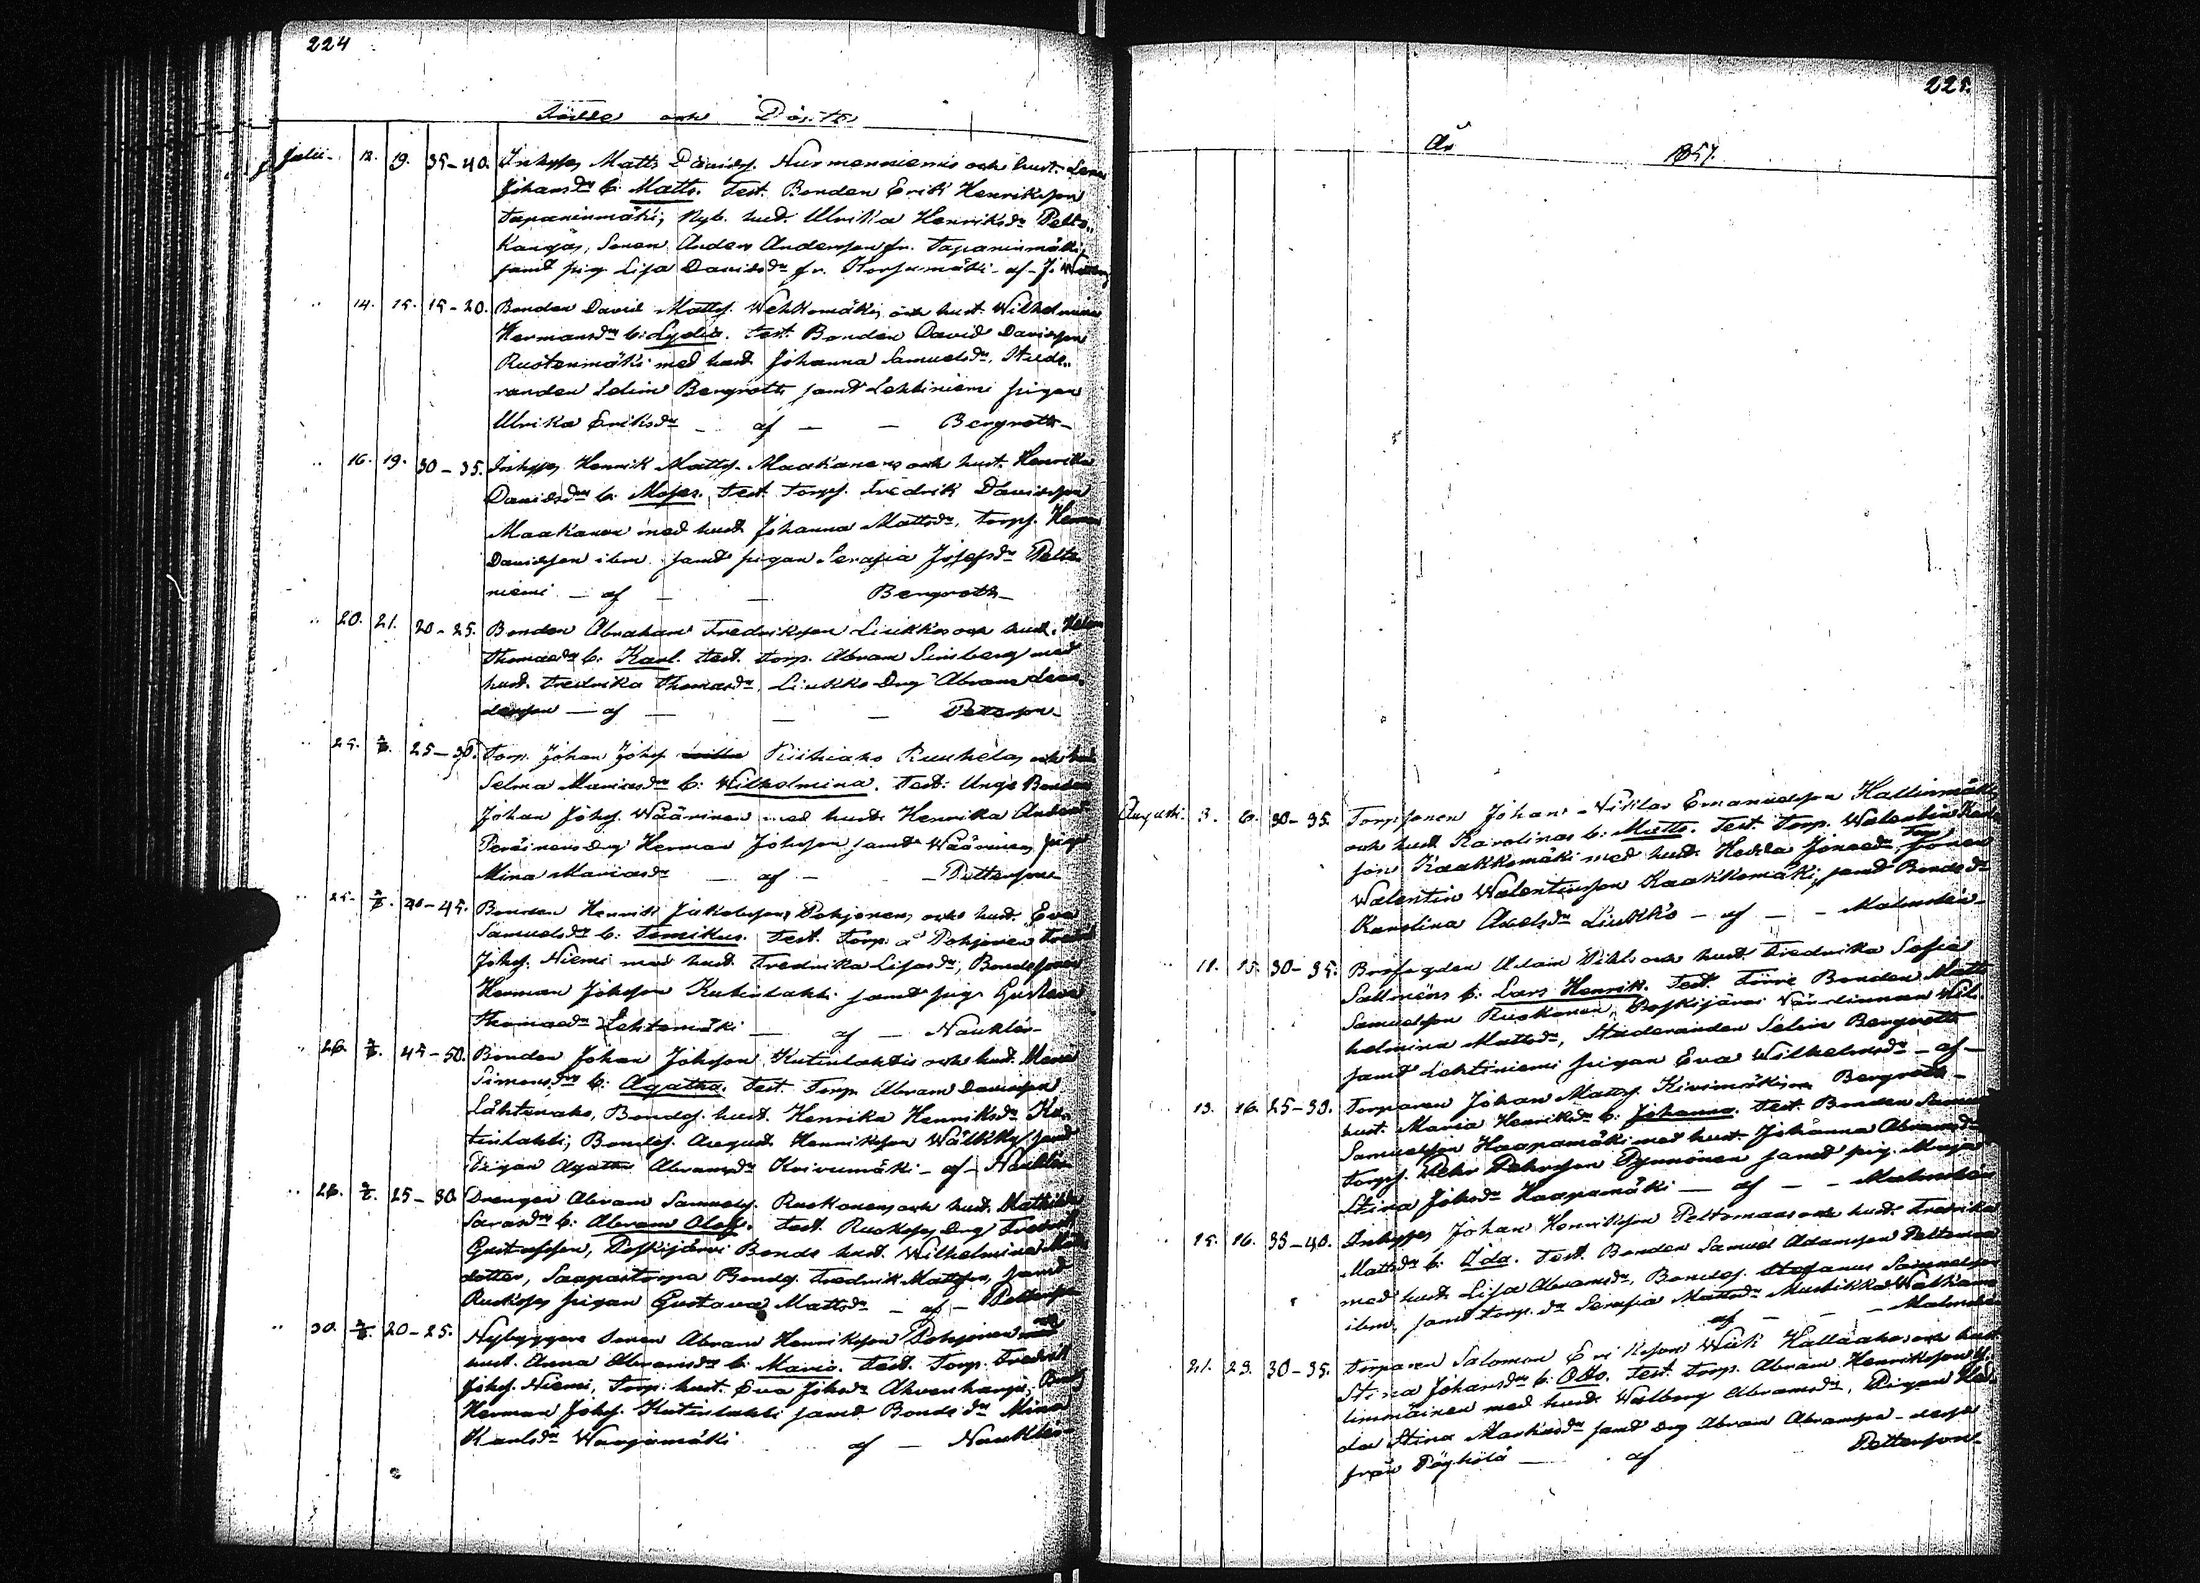 224
Födde och Döpte
Julii 12. 19. 35-40. Inhyses Matts Davidss. Nurmenniemis och hust. Lena
Johansdr b: Matts. Test. Bonden Erik Henriksson
Tapaninmäki, Nyb. hust. Ulrika Henriksdr Pelto-
kangas, Sonen Anders Andersson fr. Tapaninmäki,
samt pig. Lisa Davidsdr fr. - af - J.
" 14. 15. 15-20. Bonden David Mattss. Wehkomäkis och hust. Wilhelmina
Hermansdrs b: Lydia. Test. Bonden David Davidsson
Ruotenmäki med hust. Johanna Samuelsdr, Stude-
randen Selim Bergroth, samt Lehtiniemi pigan
Ulrika Eriksdr - af - - Bergroth -
" 16. 19. 30-35. Inhyses Henrik Mattss. Maakanens och hust. Henrika
Davidsdrs b: Moses. Test. Torpp. Fredrik Davidsson
Maakanen med hust. Johanna Mattsdr, Torpp. Herman
Davidsson ibm. samt pigan Serafia Josefsdr Pelto-
niemi - af - - Bergroth -
" 20. 21. 20-25. Bonden Abraham Fredriksson Liukkos och hust. Helena
Thomasdrs b: Karl. Test. Torp. Abram Sinsberg med
hust. Fredrika Thomasdr, Liukko Drg Abram
- af - - - Petterson -
" 25. 2/8. 25-30. Torp. Johan Johss. Riihiaho Ruuhelas och hust.
Selma Mariasdrs b: Wilhelmina. Test: Unge Bonden
Johan Johss. Wäärinen med hust. Henrika Andersdr
Peräinens Drg Herman Johsson samt Wäärinen pigan
Mina Mariasdr - af - - Petterson -
" 25. 2/8. 40-45. Bonden Henrik Jakobsson Pohjonens och hust. Eva
Samuelsdrs b: Femikus. Test. Torp. å Pohjonen Fredrik
Johss. Niemi med hust. Fredrika Lisasdr, Bondesonen
Herman Johsson Kutinlahti samt pig. Gustava
Thomasdr Lehtomäki - af - Nauklér -
" 26. 2/8. 45-50. Bonden Johan Johsson Kutinlahtis och hust. Maria
Simonsdrs b: Agatha. Test. Torp. Abram Davidsson
Lähtenaho, Bondes. hust. Henrika Henriksdr Ku-
tinlahti, Bondes. August Henriksson Wälikky samt
Pigan Agatha Abramsdr Koivumäki - af - Nauklér
" 26. 2/8. 25-30. Drengen Abram Samuelss. Ruokonens och hust. Mathilda
Sarasdrs b: Abram Aloff. Test. Ruokoses Drg Fredrik
Gustafsson, Poskijärvi Bonde hust. Wilhelmina Matts
dotter, Saapastorpa Bondes. Fredrik Mattsson, samt
Ruokoses pigan Gustava Mattsdr - af - Petterson
" 30. 2/8. 20-25. Nybyggare Sonen Abram Henriksson Pohjonens och
hust. Anna Abramsdrs b: Maria. Test. Torp. Fredrik
Johss. Niemi, Torp. hust. Eva Johsdr Ahvenharju, Bondes
Herman Johss. Kutinlahti samt Bonde dr Mina
Karlsdr Warjomäki af - Nauklér -
225.
År 1857.
Augusti. 3. 6. 30-35. Torpsonen Johan Niklas Emanuelsson Kallinmäkis
och hust. Karolinas b: Matts. Test. Torp. Walentin
son Kaakkomäki med hust. Hedda Jonasdr, Torp sonen
Walentin Walentinsson Kaakkomäki, samt Bonde dr
Karolina Axelsdr Liukko - af - - Malmstén -
" 11. 15. 30-35. Brofogden Adam Pihls och hust. Fredrika Sofia
Sallmèns b: Lars Henrik. Test. Förre Bonden Matts
Samuelsson Ruokonen, Poskijärvi Värdinnan Wil-
helmina Mattsdr, Studeranden Selim Bergroth
samt Lehtiniemi pigan Eva Wilhelmsdr - af -
Bergroth -
" 13. 16. 25-30. Torparen Johan Mattss. Kivimäkis och
hust. Maria Henriksdrs b: Johanna. Test. Bonden Samuel
Samuelsson Haapamäki med hust. Johanna Abramsdr
Torpp. Pehr Pehrsson Pynnönen samt pig. Maja
Stina Johsdr Haapamäki - af - - Malmstén
" 15. 16. 35-40. Inhyses Johan Henriksson Peltomaas och hust. Fredrika
Mattsdrs b: Ida. Test. Bonden Samuel Adamsson Peltomaa
med hust. Lisa Abramsdr, Bondes. Stefanus Samuelsson
ibm, samt Torp. dr Serafia Mattsdr Mustikka
af - - Malmstén
" 21. 23. 30-35. Torparen Salomon Eriksson Wiik Kallaahos och hust.
Stina Johansdrs b: Otto. Test. Torp. Abram Henriksson
limmäinen med hust. Walborg Abramsdr, Pigan Hed-
da Stina Markusdr samt Drg Abram Abramson
från Pöyhölä - af Petterson -